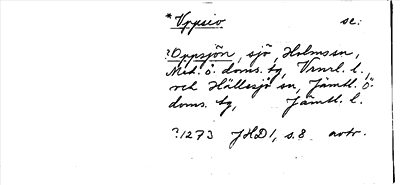 *Vppsio se:
?Oppsjön, sjö, Holms sn,
Med. ö. doms. tg, Vrnrl. l.
och Hällesjö sn, Jämtl. ö.
doms. tg, Jämtl. l.
?1273 JHD 1, s. 8 avtr.